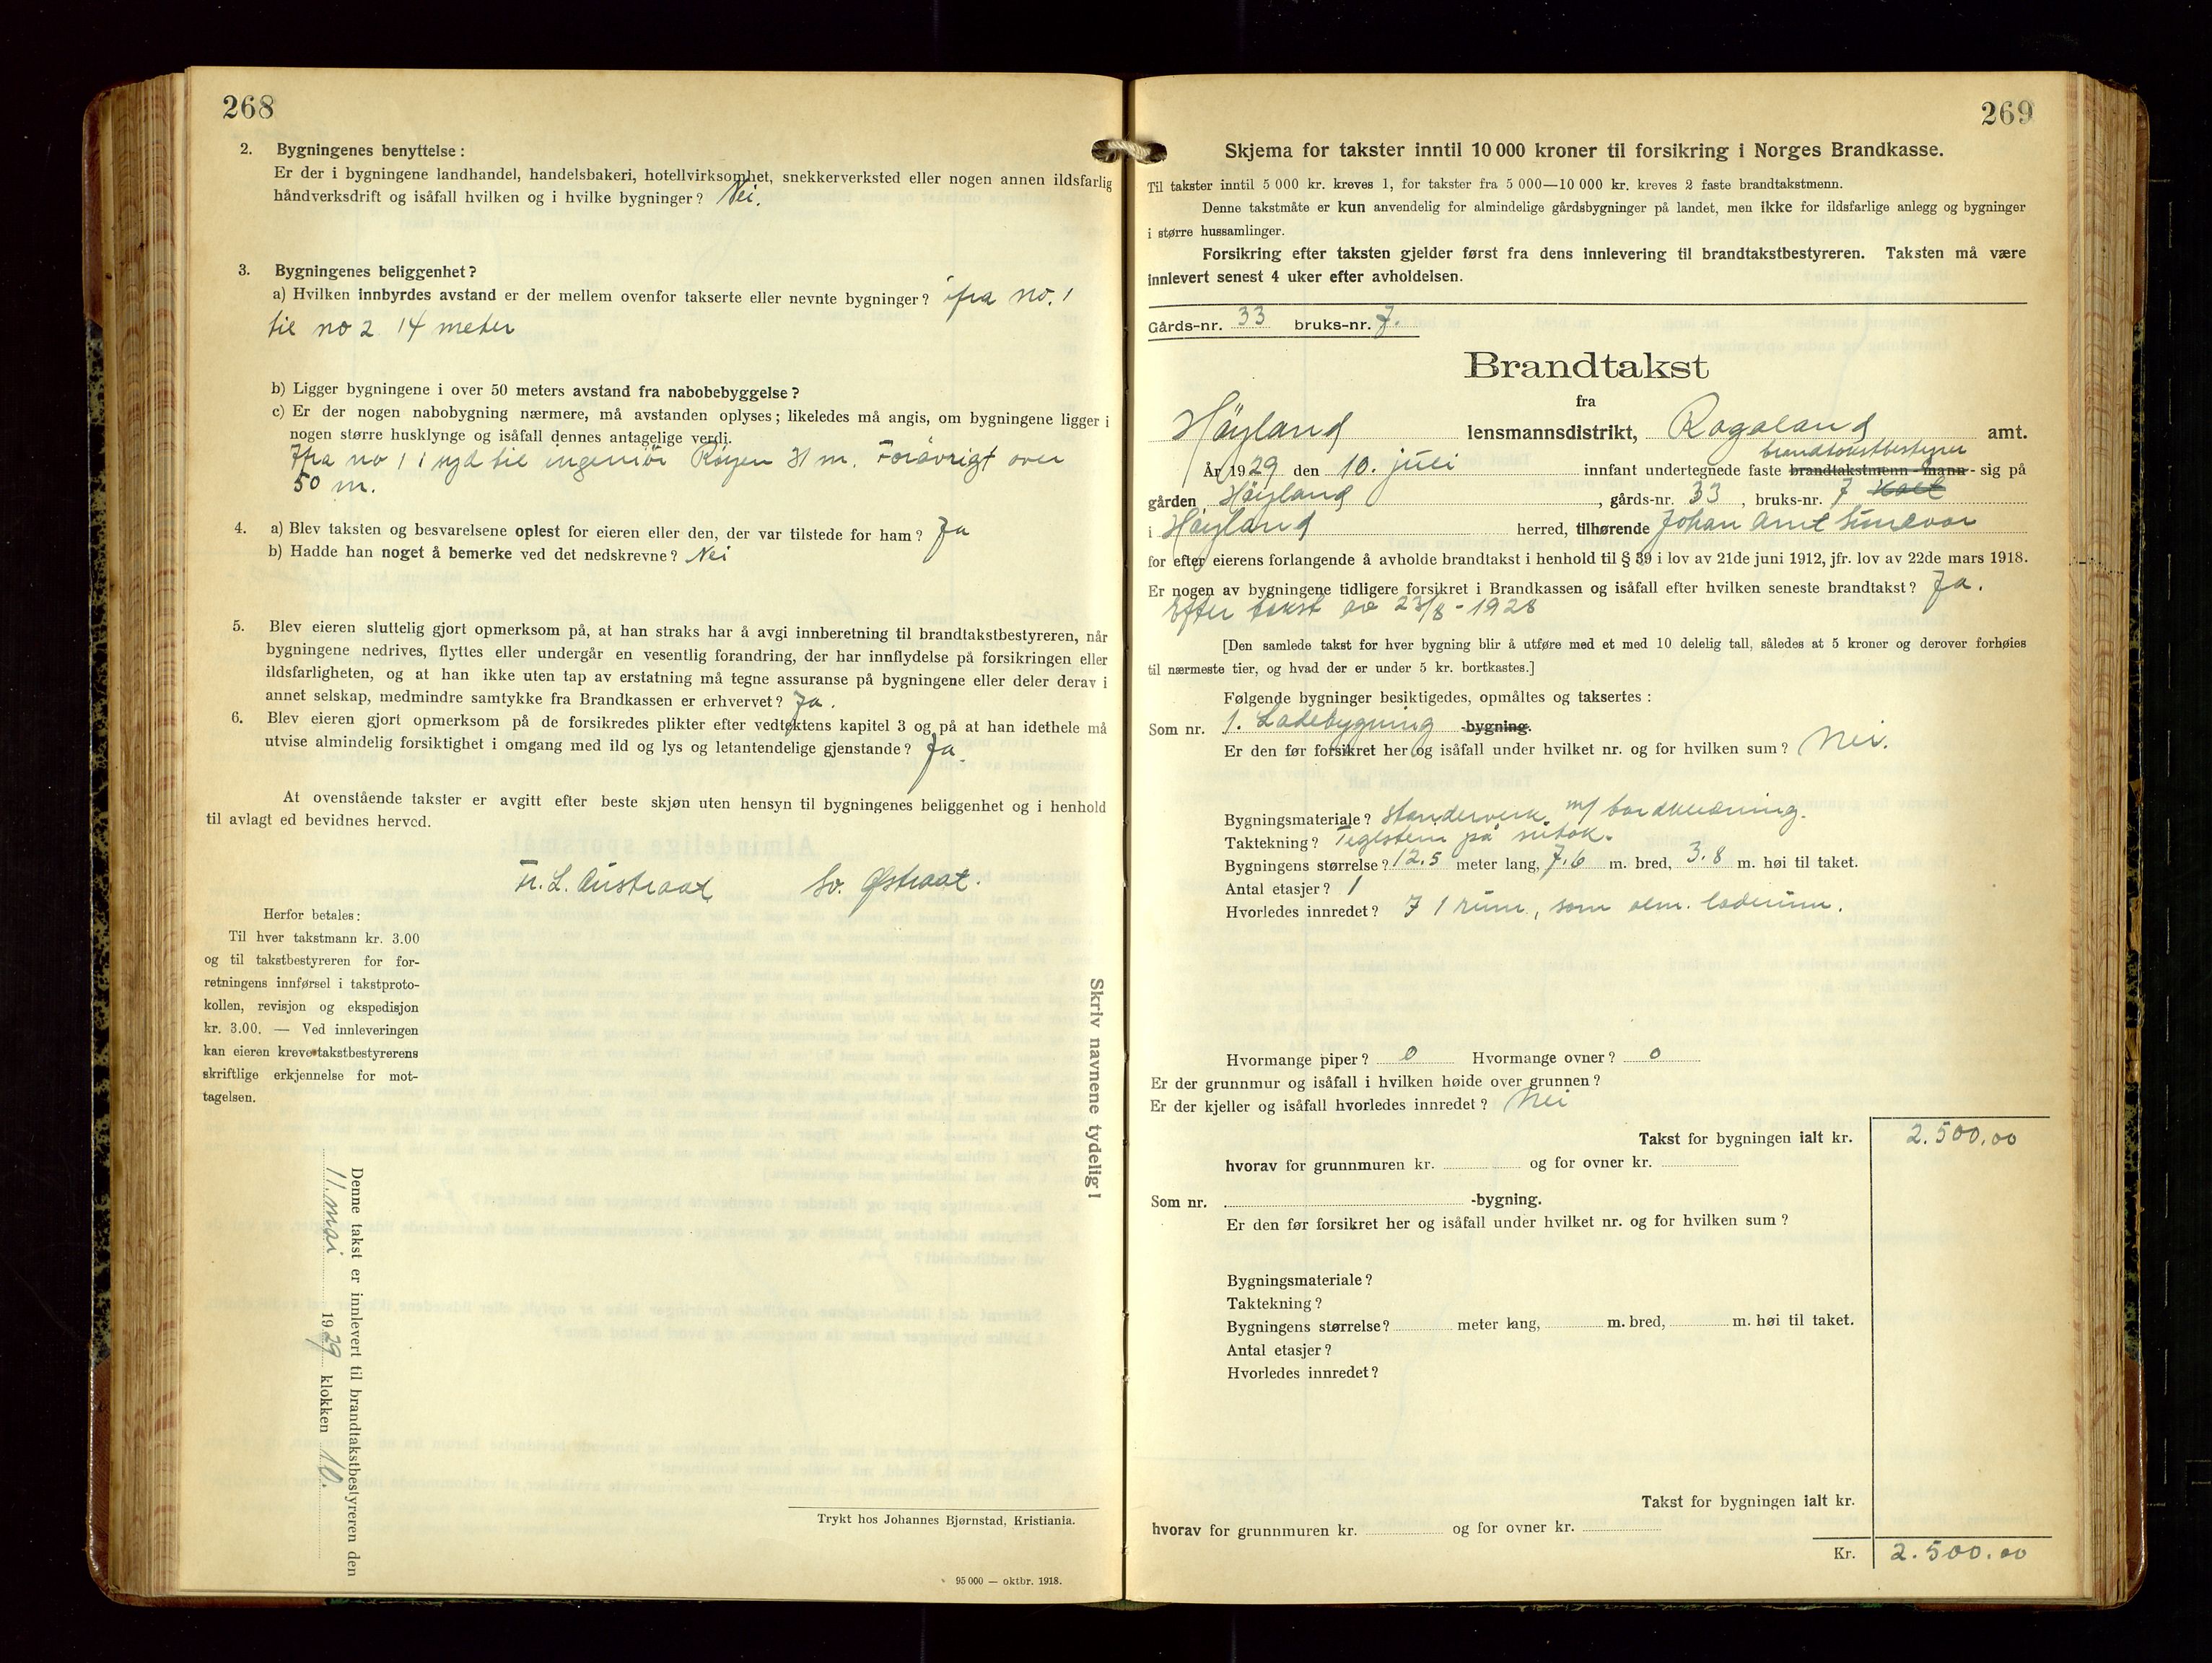 268
2. Bygningenes benyttelse:
Er der i bygningene landhandel, handelsbakeri, hotellvirksomhet, snekkerverksted eller nogen annen ildsfarlig
håndverksdrift og isåfall hvilken og i hvilke bygninger? Nei.
3. Bygningenes beliggenhet?
a) Hvilken innbyrdes avstand er der mellem ovenfor takserte eller nevnte bygninger? ifra no. 1
til no 2 14 meter
b) Ligger bygningene i over 50 meters avstand fra nabobebyggelse?
c) Er der nogen nabobygning nærmere, må avstanden oplyses; likeledes må angis, om bygningene ligger i
nogen større husklynge og isåfall dennes antagelige verdi.
Ifra no 1 i syd til ingeniør 31 m. Forøvrigt over
50 m.
4. a) Blev taksten og besvarelsene oplest for eieren eller den, der var tilstede for ham? Ja
b) Hadde han noget å bemerke ved det nedskrevne? Nei
5. Blev eieren sluttelig gjort opmerksom på, at han straks har å avgi innberetning til brandtakstbestyreren, når
bygningene nedrives, flyttes eller undergår en vesentlig forandring, der har innflydelse på forsikringen eller
ildsfarligheten, og at han ikke uten tap av erstatning må tegne assuranse på bygningene eller deler derav i
annet selskap, medmindre samtykke fra Brandkassen er erhvervet? Ja.
6. Blev eieren gjort opmerksom på de forsikredes plikter efter vedtektens kapitel 3 og på at han idethele må
utvise almindelig forsiktighet i omgang med ild og lys og letantendelige gjenstande? Ja
At ovenstående takster er avgitt efter beste skjøn uten hensyn til bygningenes beliggenhet og i henhold
til avlagt ed bevidnes herved.
L. Austraat Sv. Østraat.
Herfor betales:
Til hver takstmann kr. 3.00
og til takstbestyreren for for-
retningens innførsel i takstproto-
kollen, revisjon og ekspedisjon
kr. 3.00. — Ved innleveringen
kan eieren kreve takstbestyrerens
skriftlige erkjennelse for mot-
tagelsen.
Skriv navnene tydelig!
Denne takst er innlevert til brandtakstbestyreren den
11. mai 1929 klokken 10.
Trykt hos Johannes Bjørnstad, Kristiania.
95 000 — oktbr. 1918.
269
Skjema for takster inntil 10 000 kroner til forsikring i Norges Brandkasse.
Til takster inntil 5 000 kr. kreves 1, for takster fra 5 000—10 000 kr. kreves 2 faste brandtakstmenn.
Denne takstmåte er kun anvendelig for almindelige gårdsbygninger på landet, men ikke for ildsfarlige anlegg og bygninger
i større hussamlinger.
Forsikring efter taksten gjelder først fra dens innlevering til brandtakstbestyreren. Taksten må være
innlevert senest 4 uker efter avholdelsen.
Gårds-nr. 33 bruks-nr. 7.
Brandtakst
fra
Høyland lensmannsdistrikt, Rogaland amt.
brandtakstbestyrer
År 1929 den 10. juli innfant undertegnede faste brandtakstmenn - mann - sig på
gården Høyland, gårds-nr. 33, bruks-nr. 7
i Høyland herred, tilhørende Johan Arnt
for efter eierens forlangende å avholde brandtakst i henhold til § 39 i lov av 21de juni 1912, jfr. lov av 22de mars 1918.
Er nogen av bygningene tidligere forsikret i Brandkassen og isåfall efter hvilken seneste brandtakst? Ja.
Efter takst av 23/8 - 1928
[Den samlede takst for hver bygning blir å utføre med et med 10 delelig tall, således at 5 kroner og derover forhøies
til nærmeste tier, og hvad der er under 5 kr. bortkastes.]
Følgende bygninger besiktigedes, opmåltes og taksertes:
Som nr. 1. Ladebygning -bygning.
Er den før forsikret her og isåfall under hvilket nr. og for hvilken sum? Nei.
Bygningsmateriale? Standerverk m/ bordklædning.
Taktekning? Teglsten på sutak.
Bygningens størrelse? 12.5 meter lang, 7.6 m. bred, 3.8 m. høi til taket.
Antal etasjer? 1
Hvorledes innredet? I 1 rum, som alm. laderum.
Hvormange piper? 0 Hvormange ovner? 0
Er der grunnmur og isåfall i hvilken høide over grunnen?
Er der kjeller og isåfall hvorledes innredet? Nei
Takst for bygningen ialt kr. 2.500.00
hvorav for grunnmuren kr. og for ovner kr.
Som nr. -bygning.
Er den før forsikret her og isåfall under hvilket nr. og for hvilken sum?
Bygningsmateriale?
Taktekning?
Bygningens størrelse? meter lang, m. bred, m. høi til taket.
Antal etasjer?
Hvorledes innredet?
Takst for bygningen ialt kr.
hvorav for grunnmuren kr. og for ovner kr.
Kr. 2.500.00